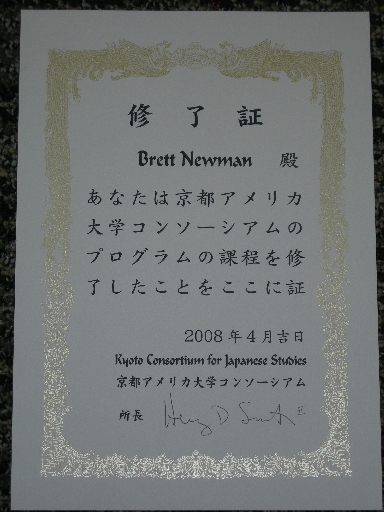 修了証
Brett Newman 殿
あなたは京都アメリカ
大学コンソーシアムの
プログラムの課程を修
了したことをここに証
2008年4月吉日
Kyoto Consortium for Japanese Studies
京都アメリカ大学コンソーシアム
所長 Henry D. Smith